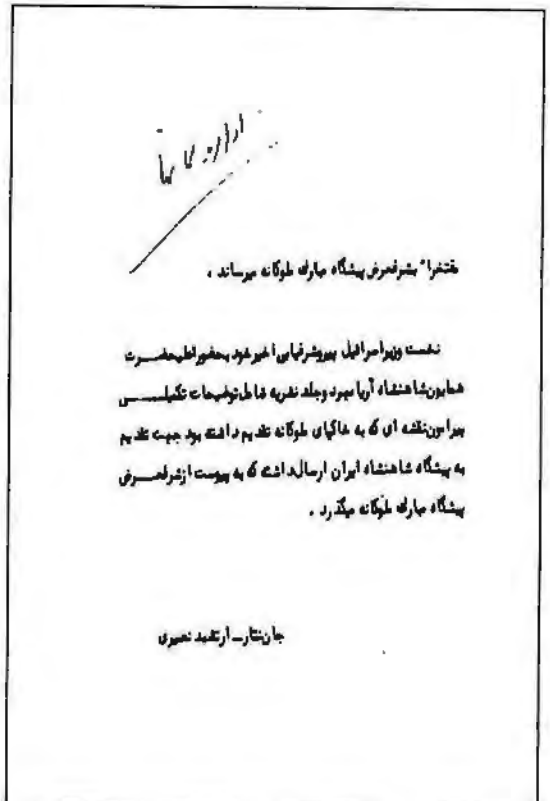 مفتخرا" بشرفعرض پیشگاه مبارک ملوکانه میرساند .
نخست وزیر اسرائیل پیرو شرفیابی اخیر خود بحضور اعلیحضرت
همایون شاهنشاه آریامهر دو جلد نشریه شامل توضیحات تکمیلی
پیرامون نقشه ای که به خاکپای ملوکانه تقدیم داشته بود جهت تقدیم
به پیشگاه شاهنشاه ایران ارسال داشته که به پیوست از شرفعرض
پیشگاه مبارک ملوکانه میگذرد .
جان نثار ـ ارتشبد نصیری